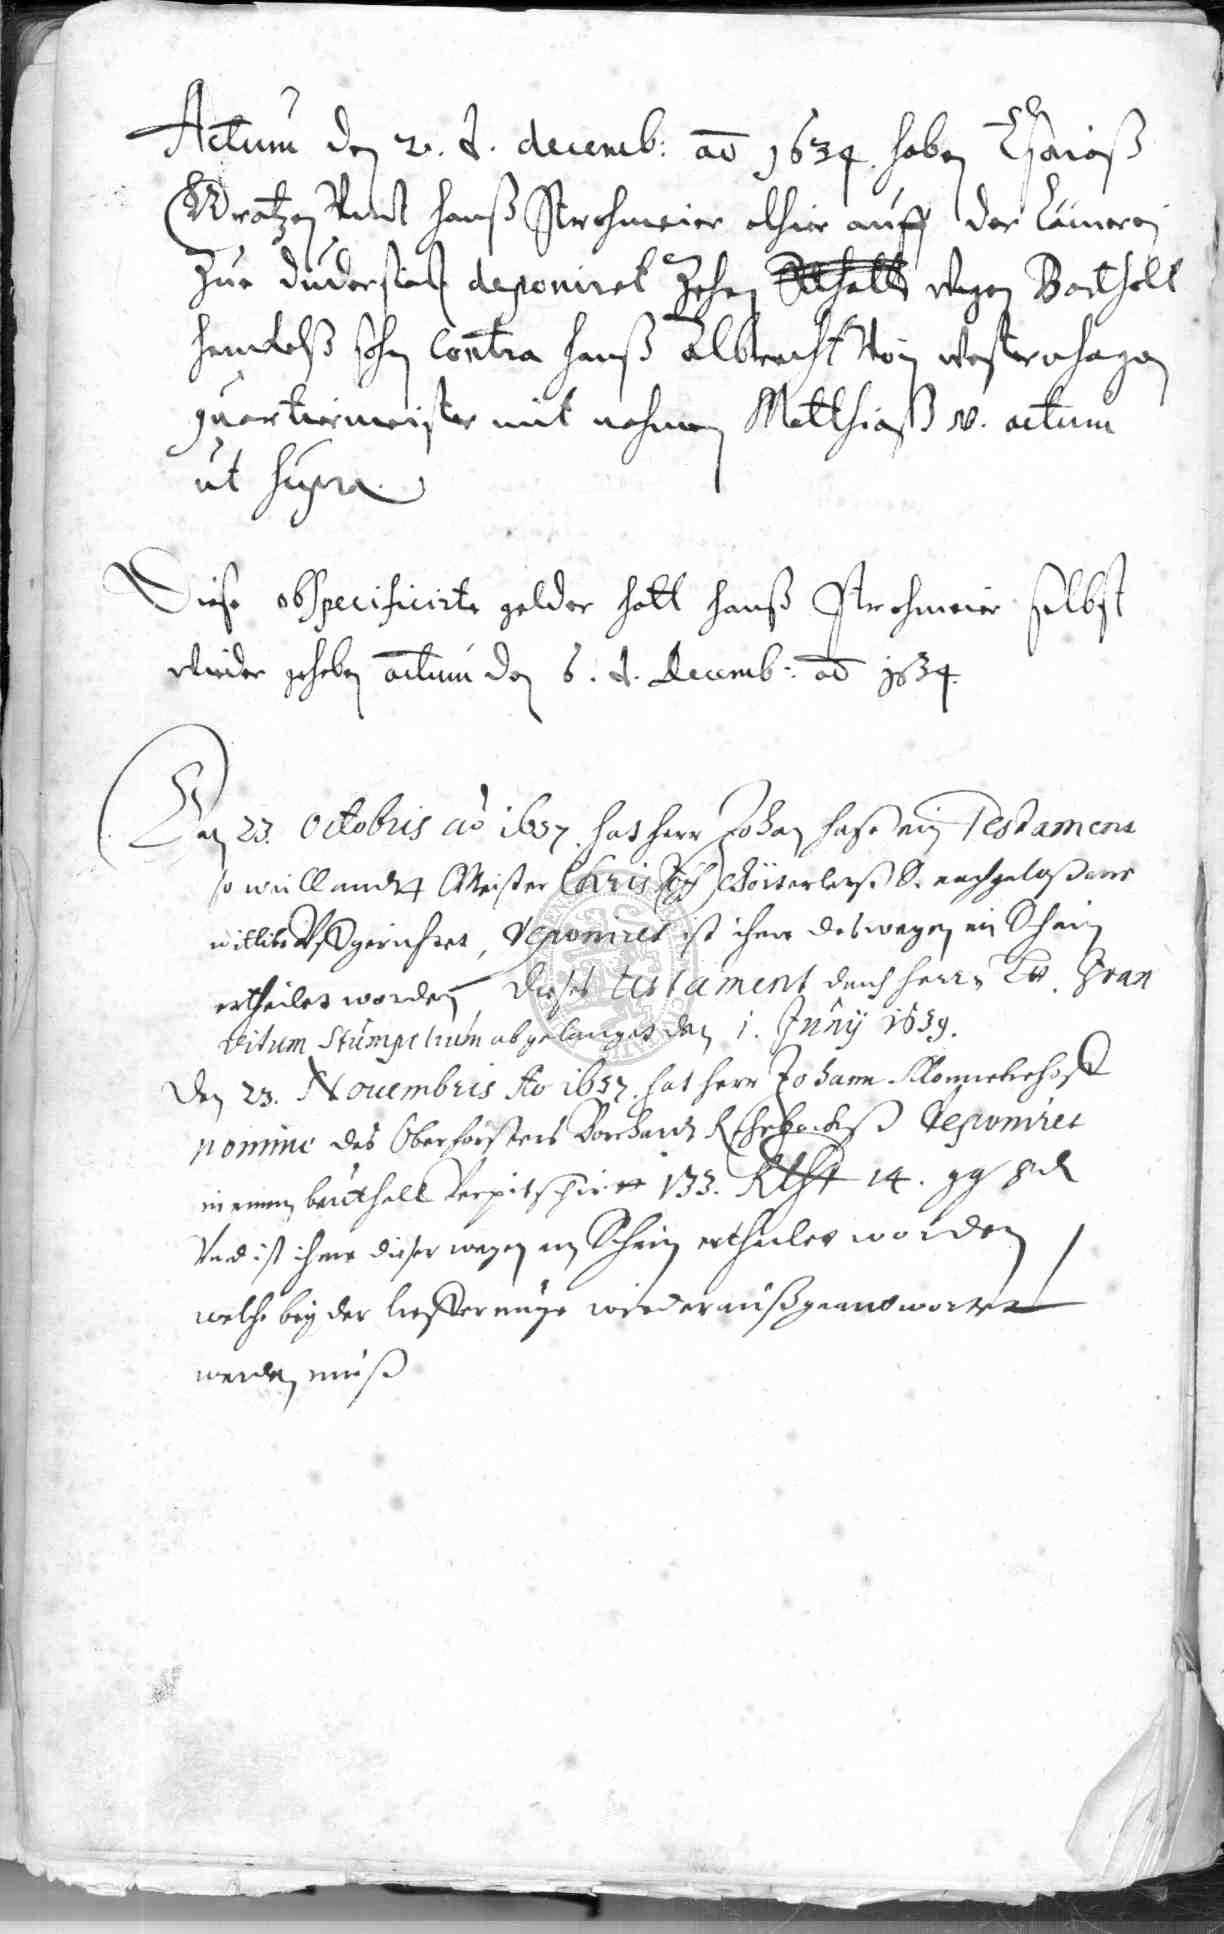 Actum den 2. t. decemb: ao 1634 haben Esaiaß
Wratzen Undt Hanß Strohmeier alhier auff der Cämerei
Zue duderstadt deponiret Zehen Rthall wegen Barthelt
Hendelß sohn Contra Hanß Albrecht Von westernhagen
quartiermeister mit nahmen Matthiaß N. actum
ut supra
Diese obspecificirte gelder hatt Hanß Strohmeier selbst
wieder gehoben actum den 6. t. decemb: ao 1634.
Den 23. Octobris ao 1637. hat herr Johan Hase ein Testament
so weillandt Meister Christoff S. nachgelaßene
wittibe Uffgerichtet, deponiret ist ihme deswegen ein Schein
ertheilet worden Dieses testament durch herrn Fran
Vitum Stumpelium abgelanget den 1. Junij 1639.
Den 23. Nouembris Ao 1637. hat herr Johann
nomine des Oberforsters deponiret
in einen beuthell Verpitschirt 133. Rthll 14. gg 8 d
Und ist ihme dieser wegen ein Schein ertheilet worden
welche bey der liefferunge wieder außgeantwortet
werden muß